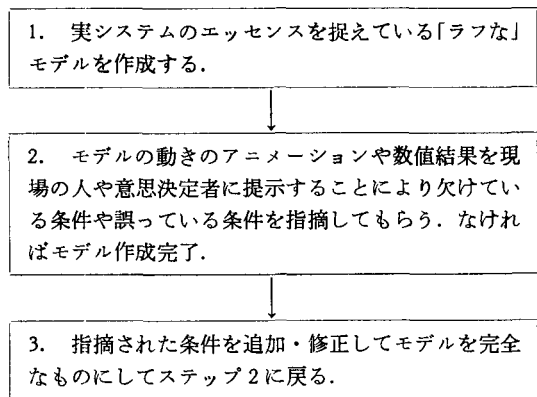 1. 実システムのエッセンスを捉えている「ラフな」
モデルを作成する.
2. モデルの動きのアニメーションや数値結果を現
場の人や意思決定者に提示することにより欠けてい
る条件や誤っている条件を指摘してもらう. なけれ
ばモデル作成完了.
3. 指摘された条件を追加・修正してモデルを完全
なものにしてステップ2に戻る.